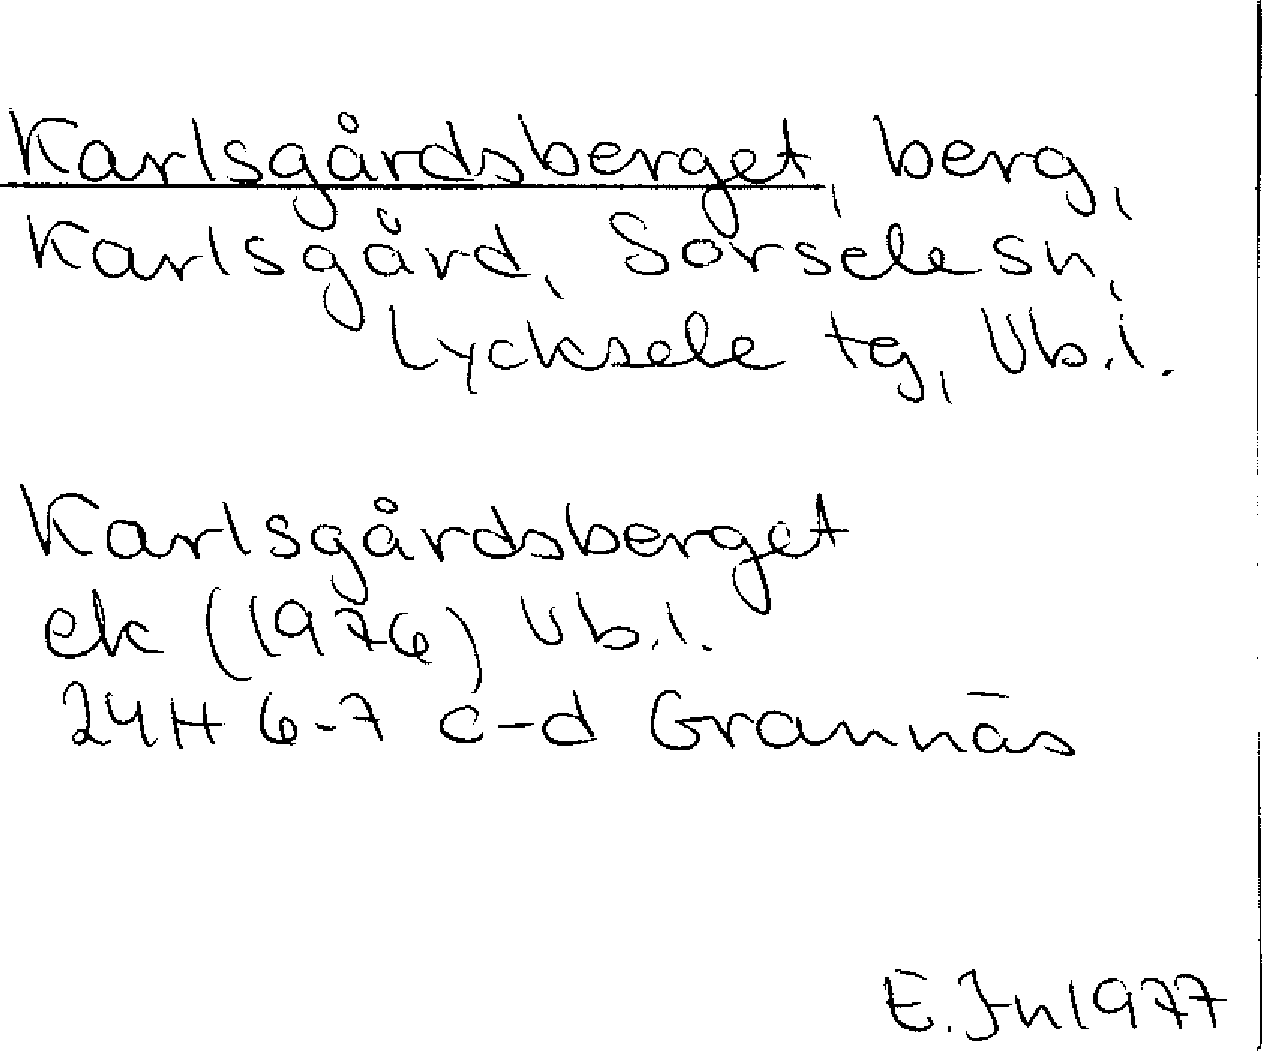 Karlsgårdsberget, berg,
Karlsgård, Sorsele sn,
Lycksele tg, Vb.l.
Karlsgårdsberget
ek (1976) Vb.l.
24H 6-7 c-d Grannäs
E.Jn 1977